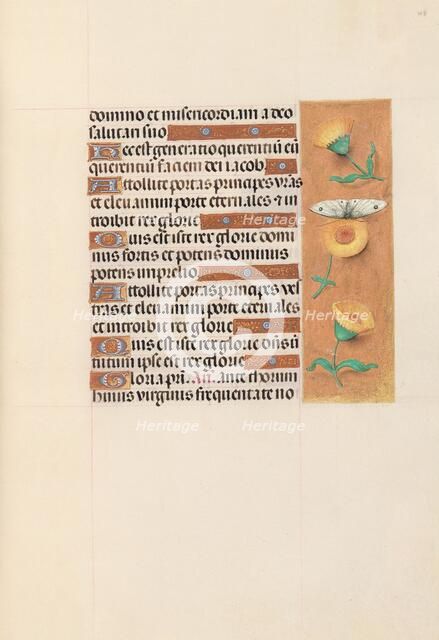 domino et misericordiam a deo
salutari suo
Hec est generatio querentiū eū
querentiū faciem dei iacob
Attollite portas principes v̄ras
et eleuamini porte eternales & in
troibit rex glorie
Quis est iste rex glorie domi
nus fortis et potens dominus
potens in prelio
Attollite portas principes vel
tras et eleuamini porte eternales
et introibit rex glorie
Quis est iste rex glorie dn̄s uir
tutum ipse est rex glorie
Gloria pri. An. ante thorum
huius virginis frequentate no
Heritage
Heritage
Heritage
Heritage
Heritage
Heritage